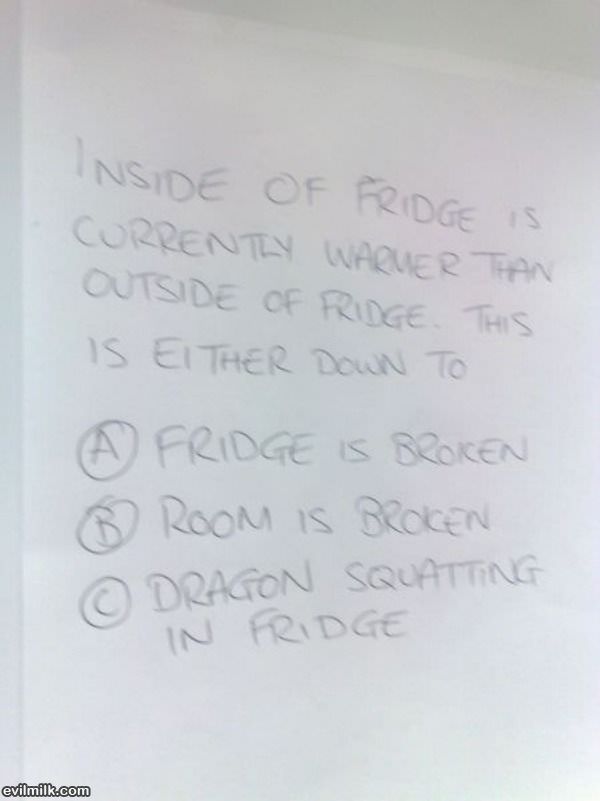 INSIDE OF FRIDGE IS
CURRENTLY WARMER THAN
OUTSIDE OF FRIDGE. THIS
IS EITHER DOWN TO
A FRIDGE IS BROKEN
B ROOM IS BROKEN
C DRAGON SQUATTING
IN FRIDGE
evilmilk.com